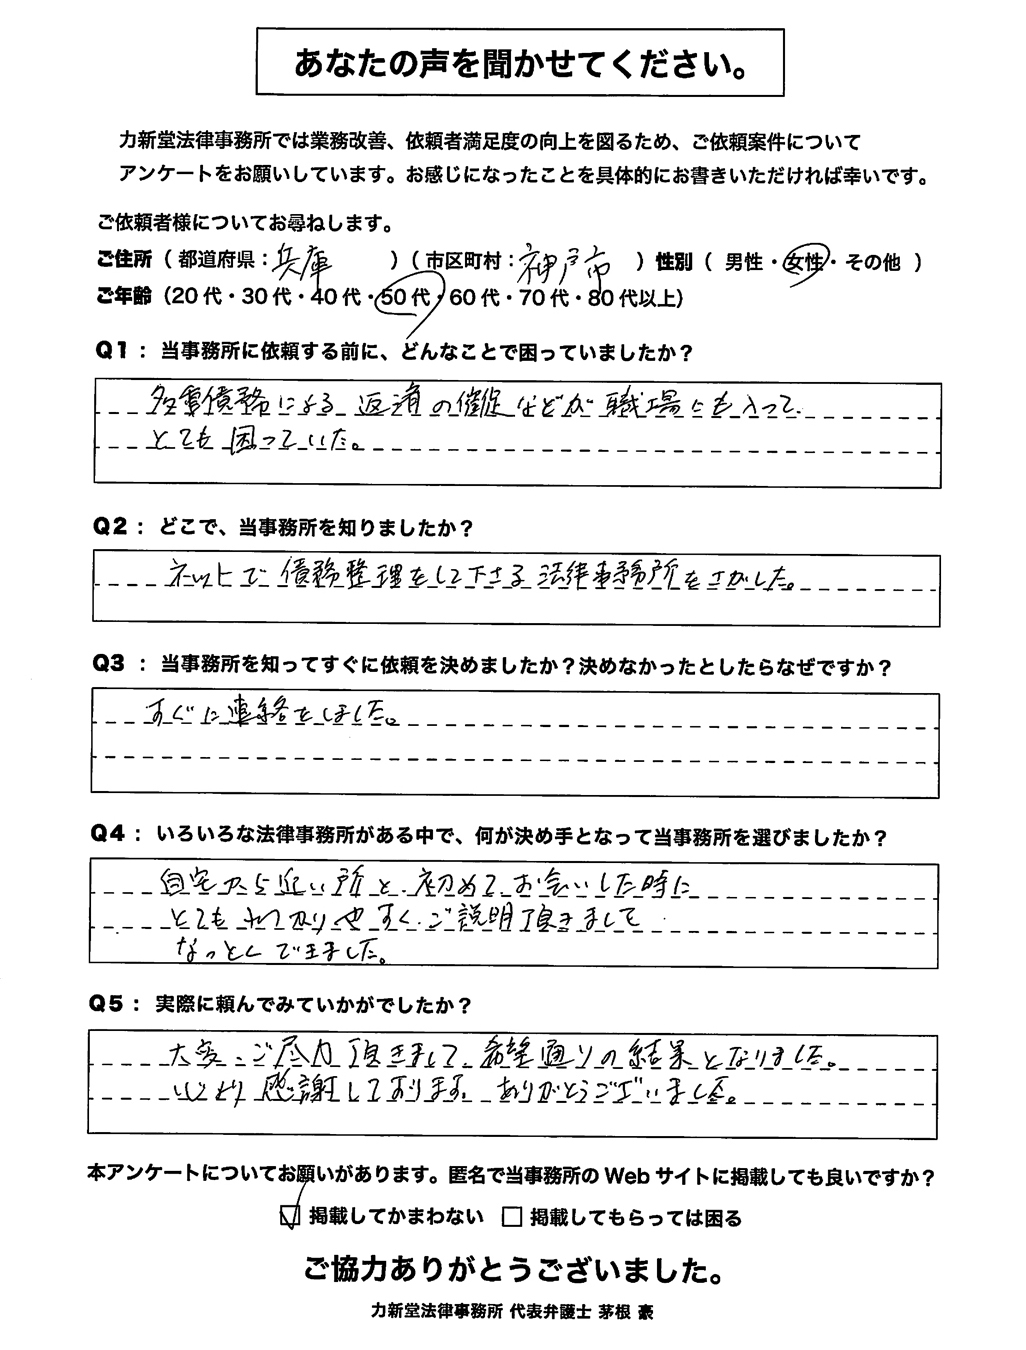 あなたの声を聞かせてください。
力新堂法律事務所では業務改善、依頼者満足度の向上を図るため、ご依頼案件について
アンケートをお願いしています。お感じになったことを具体的にお書きいただければ幸いです。
ご依頼者様についてお尋ねします。
ご住所（都道府県：兵庫）（市区町村：神戸市）性別（男性・女性・その他）
ご年齢（20代・30代・40代・50代・60代・70代・80代以上）
Q1：当事務所に依頼する前に、どんなことで困っていましたか？
多重債務による返済の催促などが職場にも入って
とても困っていた。
Q2：どこで、当事務所を知りましたか？
ネットで債務整理をして下さる法律事務所をさがした。
Q3：当事務所を知ってすぐに依頼を決めましたか？決めなかったとしたらなぜですか？
すぐに連絡をしました。
Q4：いろいろな法律事務所がある中で、何が決め手となって当事務所を選びましたか？
自宅から近い所と、初めてお会いした時に
とてもわかりやすく、ご説明頂きまして
なっとくできました。
Q5：実際に頼んでみていかがでしたか？
大変、ご尽力頂きまして、希望通りの結果となりました。
心より感謝しております。ありがとうございました。
本アンケートについてお願いがあります。匿名で当事務所のWebサイトに掲載しても良いですか？
☑ 掲載してかまわない □ 掲載してもらっては困る
ご協力ありがとうございました。
力新堂法律事務所 代表弁護士 茅根 豪